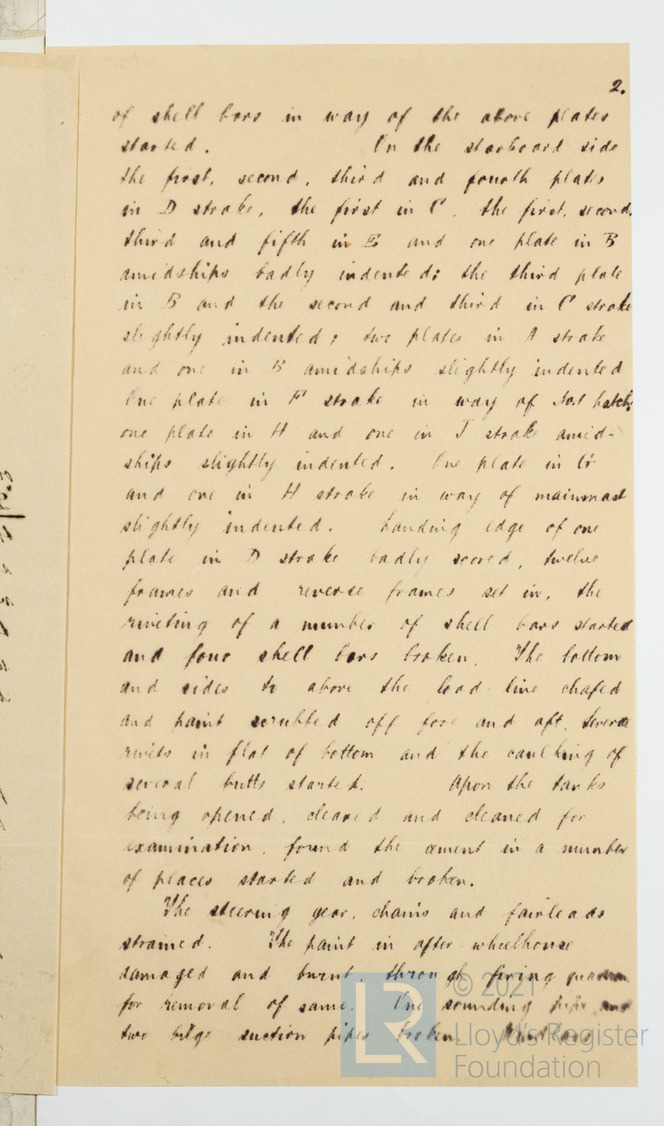 2.
of shell bars in way of the above plates
started. On the starboard side
the first, second, third and fourth plates
in D strake, the first in C, the first, second,
third and fifth in E and one plate in B
amidships badly indented; the third plate
in B and the second and third in C strake
slightly indented; two plates in A strake
and one in B amidships slightly indented
One plate in F strake in way of No1 hatch,
one plate in H and one in J strake amid-
ships slightly indented. One plate in G
and one in H strake in way of mainmast
slightly indented. Landing edge of one
plate in D strake badly scored, twelve
frames and reverse frames set in, the
riveting of a number of shell bars started
and four shell bars broken. The bottom
and sides to above the load line chafed
and paint scrubbed off fore and aft. Several
rivets in flat of bottom and the caulking of
several butts started. Upon the tanks
being opened, cleared and cleaned for
examination, found the cement in a number
of places started and broken.
The steering gear, chains and fairleads
strained. The paint in after wheelhouse
damaged and burnt, through firing
for removal of same. One sounding pipe and
two bilge suction pipes broken.
© 2021
Lloyd's Register
Foundation
LR